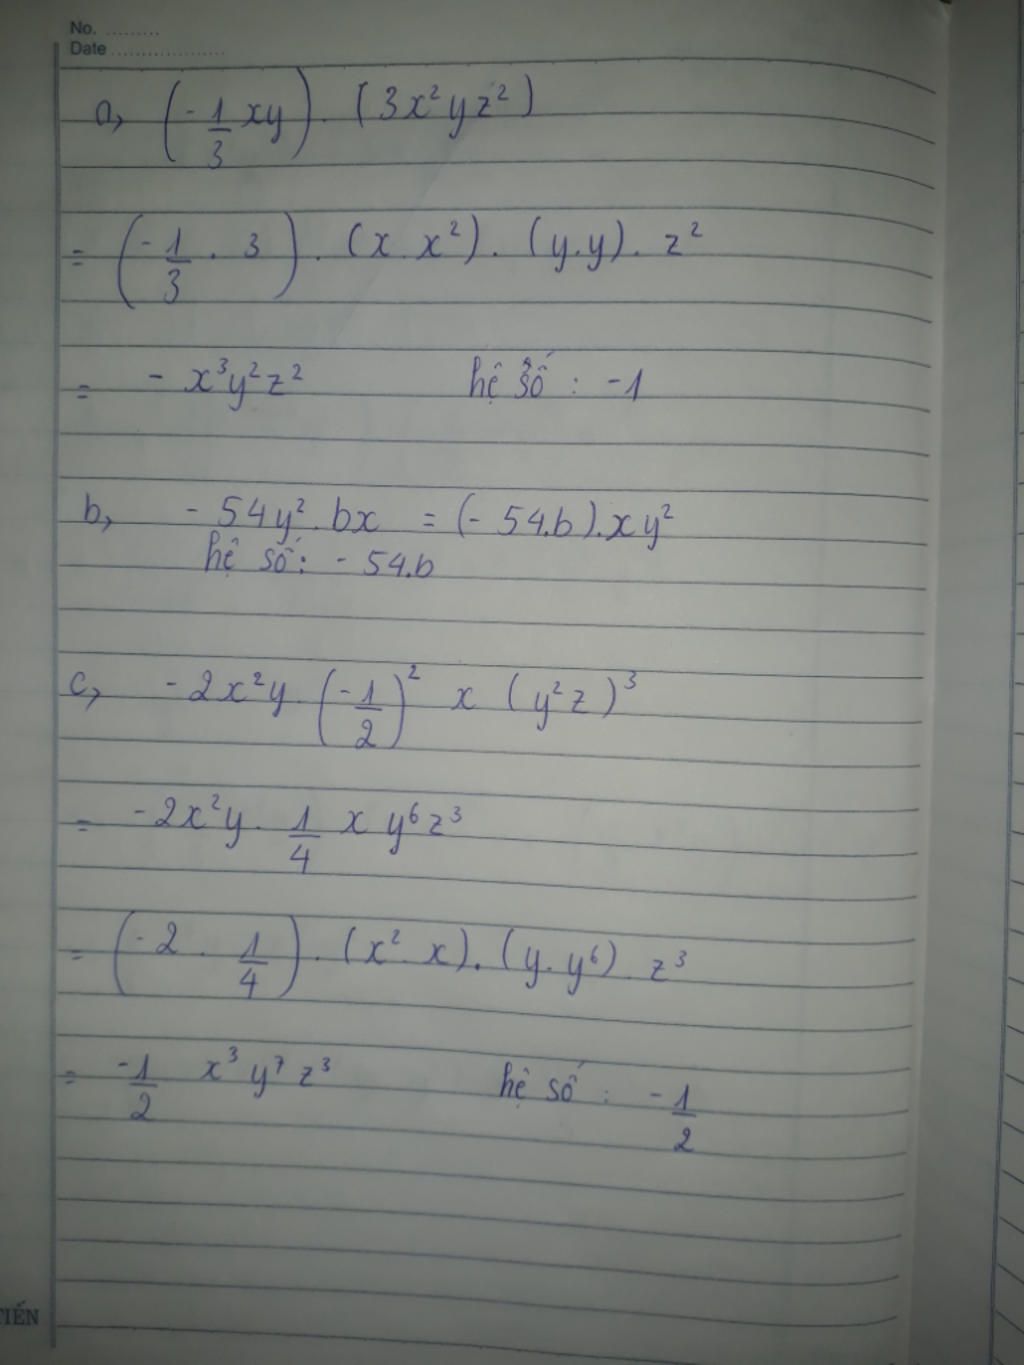 No. .........
Date ...................
a, (-1/3 xy) . (3x²yz²)
= (-1/3 . 3) . (x . x²) . (y.y) . z²
= - x³y²z² hệ số : -1
b, - 54y².bx = (- 54.b).xy²
hệ số : - 54.b
c, -2x²y.(-1/2)² x (y²z)³
= -2x²y. 1/4 x y⁶z³
= (-2 . 1/4) . (x². x). (y. y⁶) . z³
= -1/2 x³ y⁷ z³ hệ số : -1/2
TIẾN